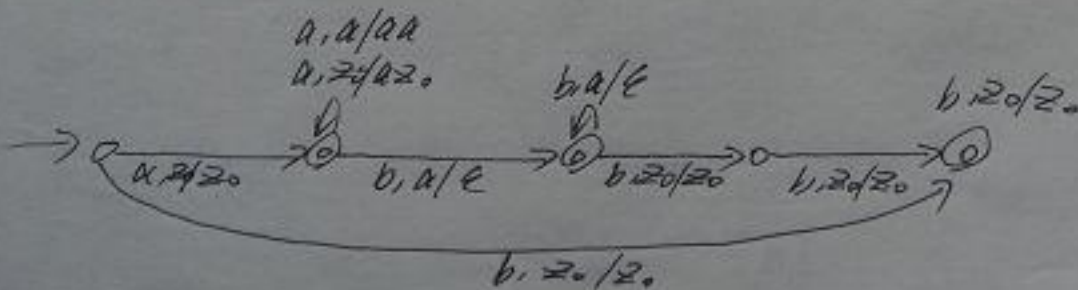 a, a/aa
a, z₀/az₀
b, a/ε
b, z₀/z₀
a, z₀/z₀
b, a/ε
b, z₀/z₀
b, z₀/z₀
b, z₀/z₀